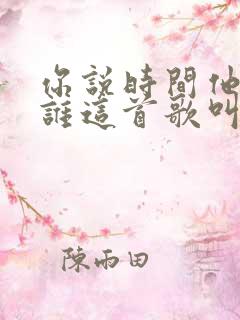 你說時間他
誰這首歌叫
陳雨田